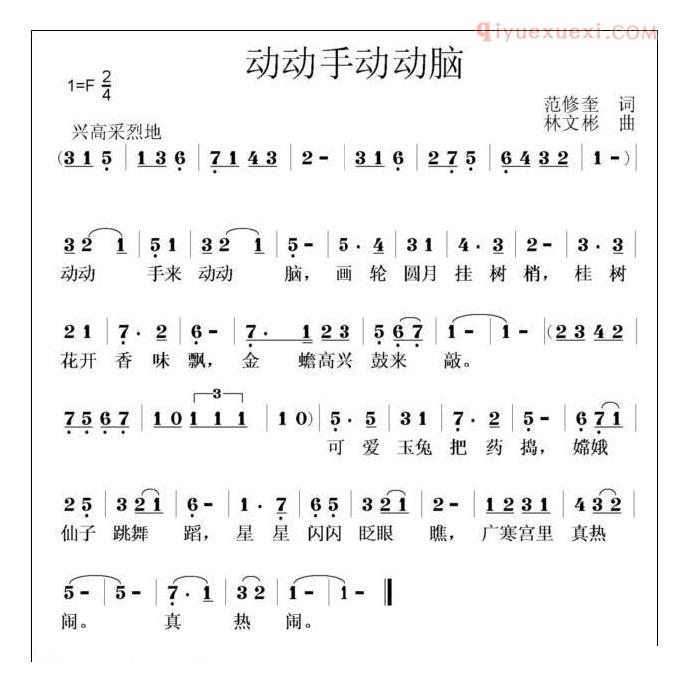 qiyuexuexi.com
动动手动动脑
1=F 2/4
范修奎 词
林文彬 曲
兴高采烈地
(3 1 5 | 1 3 6 | 7 1 4 3 | 2 - | 3 1 6 | 2 7 5 | 6 4 3 2 | 1 - )|
3 2 1 | 5 1 | 3 2 1 | 5 - | 5 . 4 | 3 1 | 4 . 3 | 2 - | 3 . 3 |
动动 手来 动动 脑， 画 轮 圆月 挂 树 梢， 桂 树
2 1 | 7 . 2 | 6 - | 7 . 1 2 3 | 5 6 7 | 1 - | 1 - |(2 3 4 2 |
花开 香 味 飘， 金 蟾高兴 鼓来 敲。
7 5 6 7 | 1 0 1 1 1 | 1 0 )| 5 . 5 | 3 1 | 7 . 2 | 5 - | 6 7 1 |
3
可 爱 玉兔 把 药 捣， 嫦娥
2 5 | 3 2 1 | 6 - | 1 . 7 | 6 5 | 3 2 1 | 2 - | 1 2 3 1 | 4 3 2 |
仙子 跳舞 蹈， 星 星 闪闪 眨眼 瞧， 广寒宫里 真热
5 - | 5 - | 7 . 1 | 3 2 | 1 - | 1 - ‖
闹。 真 热 闹。